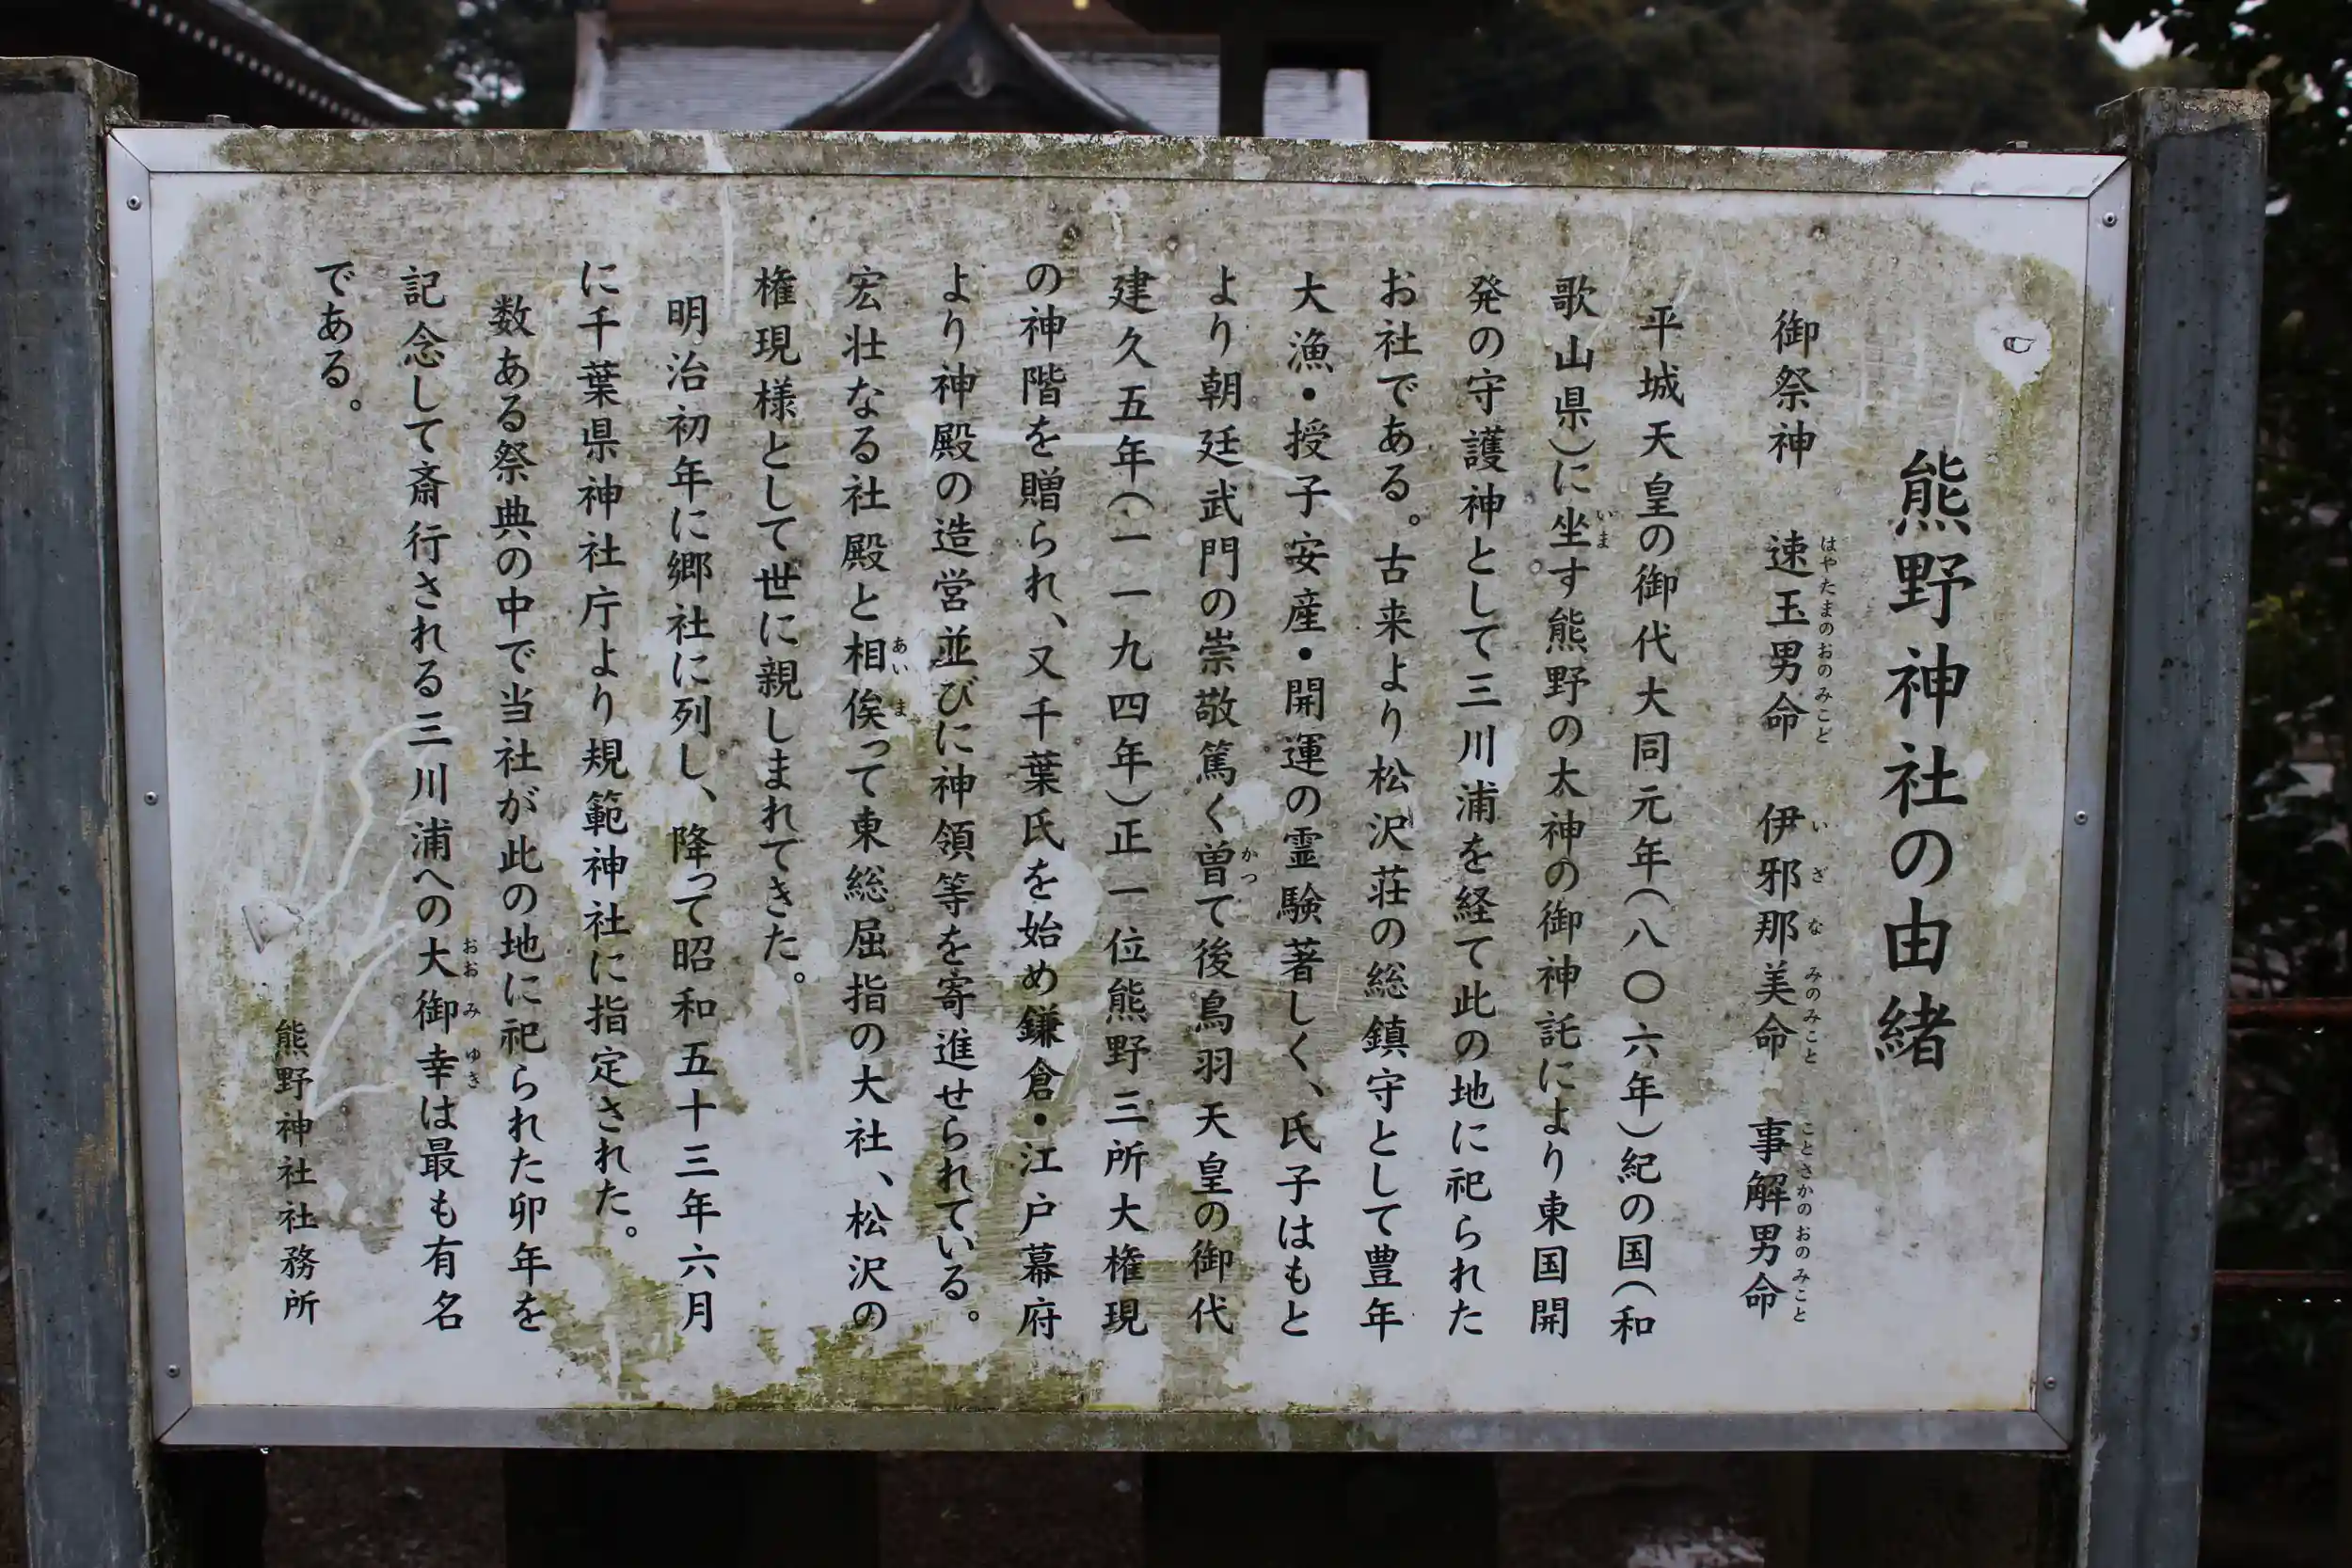 熊野神社の由緒
御祭神　速玉男命　伊邪那美命　事解男命
はやたまのおのみこと　いざなみのみこと　ことさかのおのみこと
平城天皇の御代大同元年（八〇六年）紀の国（和
歌山県）に坐す熊野の太神の御神託により東国開
いま
発の守護神として三川浦を経て此の地に祀られた
お社である。古来より松沢荘の総鎮守として豊年
大漁・授子安産・開運の霊験著しく、氏子はもと
より朝廷武門の崇敬篤く曽て後鳥羽天皇の御代
かつ
建久五年（一一九四年）正一位熊野三所大権現
の神階を贈られ、又千葉氏を始め鎌倉・江戸幕府
より神殿の造営並びに神領等を寄進せられている。
宏壮なる社殿と相俟って東総屈指の大社、松沢の
あいま
権現様として世に親しまれてきた。
明治初年に郷社に列し、降って昭和五十三年六月
に千葉県神社庁より規範神社に指定された。
数ある祭典の中で当社が此の地に祀られた卯年を
記念して斎行される三川浦への大御幸は最も有名
おおみゆき
である。
熊野神社社務所